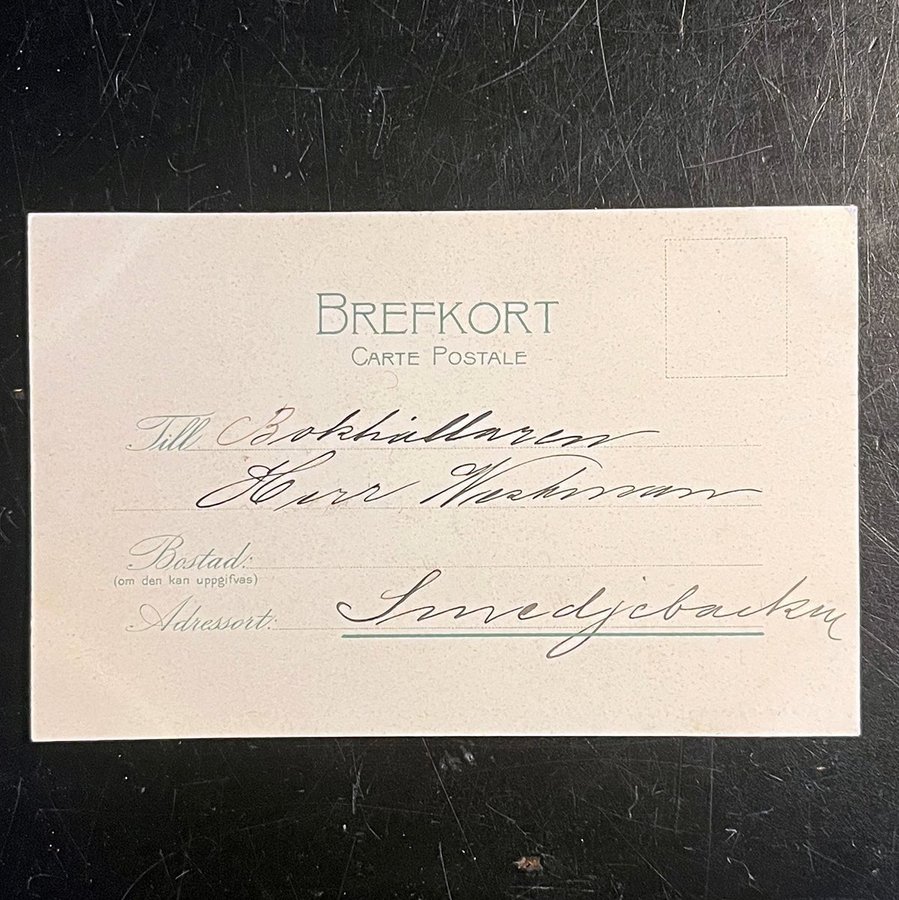 BREFKORT
CARTE POSTALE
Till Bokhållaren
Herr Westman
Bostad:
(om den kan uppgifvas)
Adressort: Smedjebacken